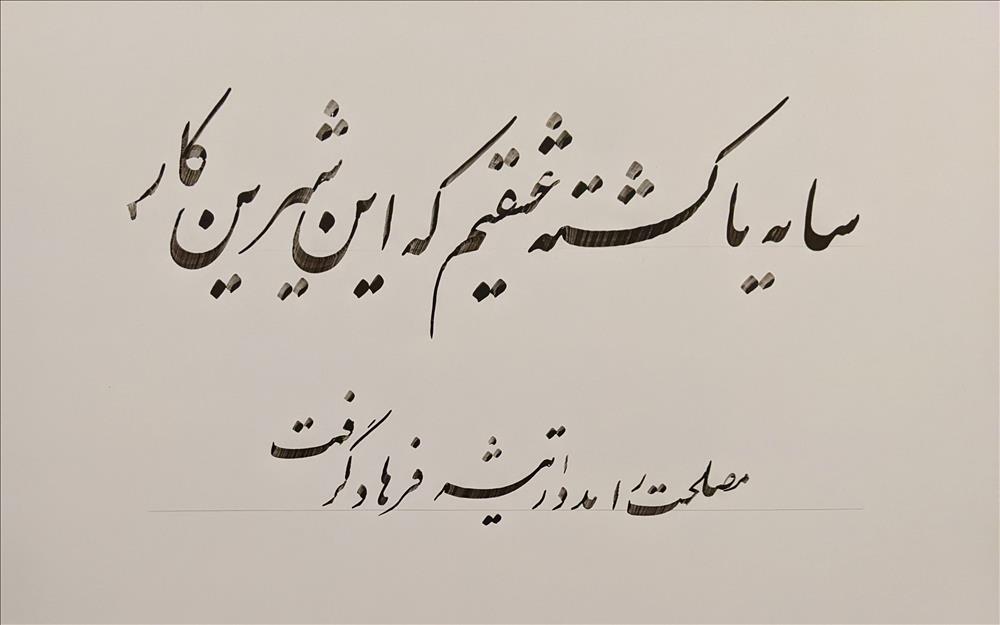 سایه ما کشته عشقیم که این شیرین کار
مصلحت را مدد از تیشه فرهاد گرفت